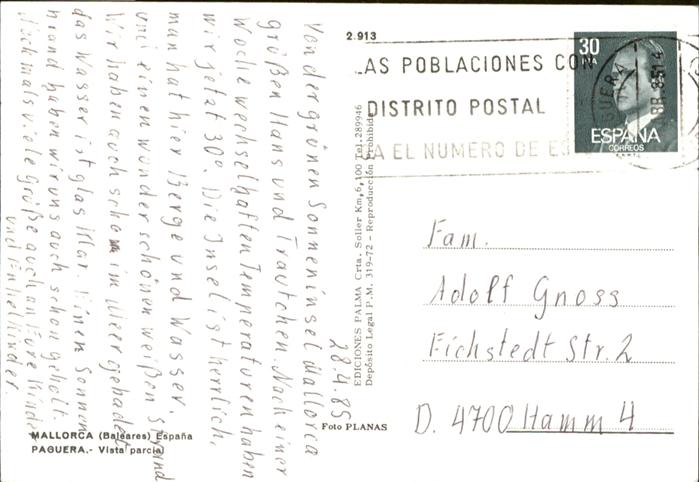 2.913
LAS POBLACIONES CON
DISTRITO POSTAL
EL NUMERO DE
30
PTA
ESPAÑA
CORREOS
28.4.85
Von der grünen Sonneninsel Mallorca
grüßen Hans und Trautchen. Nach einer
Woche wechselhaften Temperaturen haben
wir jetzt 30°. Die Insel ist herrlich,
man hat hier Berge und Wasser.
und einen wunderschönen weißen Strand
Wir haben auch schon im Meer gebadet
das Wasser ist glas klar. Einen Sonnen
brand haben wir uns auch schon geholt.
Nochmals viele Grüße auch an Eure Kinder
und Enkelkinder.
EDICIONES PALMA Crta. Soller Km, 6,100 Tel. 289946
Depósito Legal P.M. 319-72 - Reproducción Prohibida
Fam.
Adolf Gnoss
Eichstedt Str. 2
D. 4700 Hamm 4
Foto PLANAS
MALLORCA (Baleares) España
PAGUERA.- Vista parcial